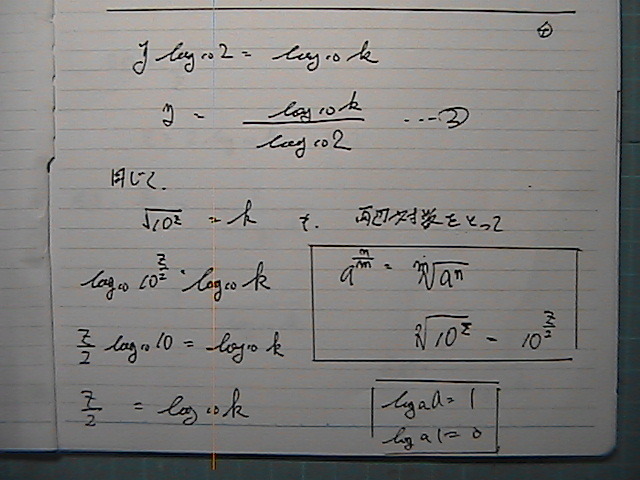 ④
y log₁₀2 = log₁₀k
y = log₁₀k / log₁₀2 ・・・②
同じく、
√10ᶻ = k も、両辺対数をとって
log₁₀10^(z/2) = log₁₀k
a^(n/m) = ᵐ√aⁿ
²√10ᶻ = 10^(z/2)
z/2 log₁₀10 = log₁₀k
z/2 = log₁₀k
logₐa = 1
logₐ1 = 0